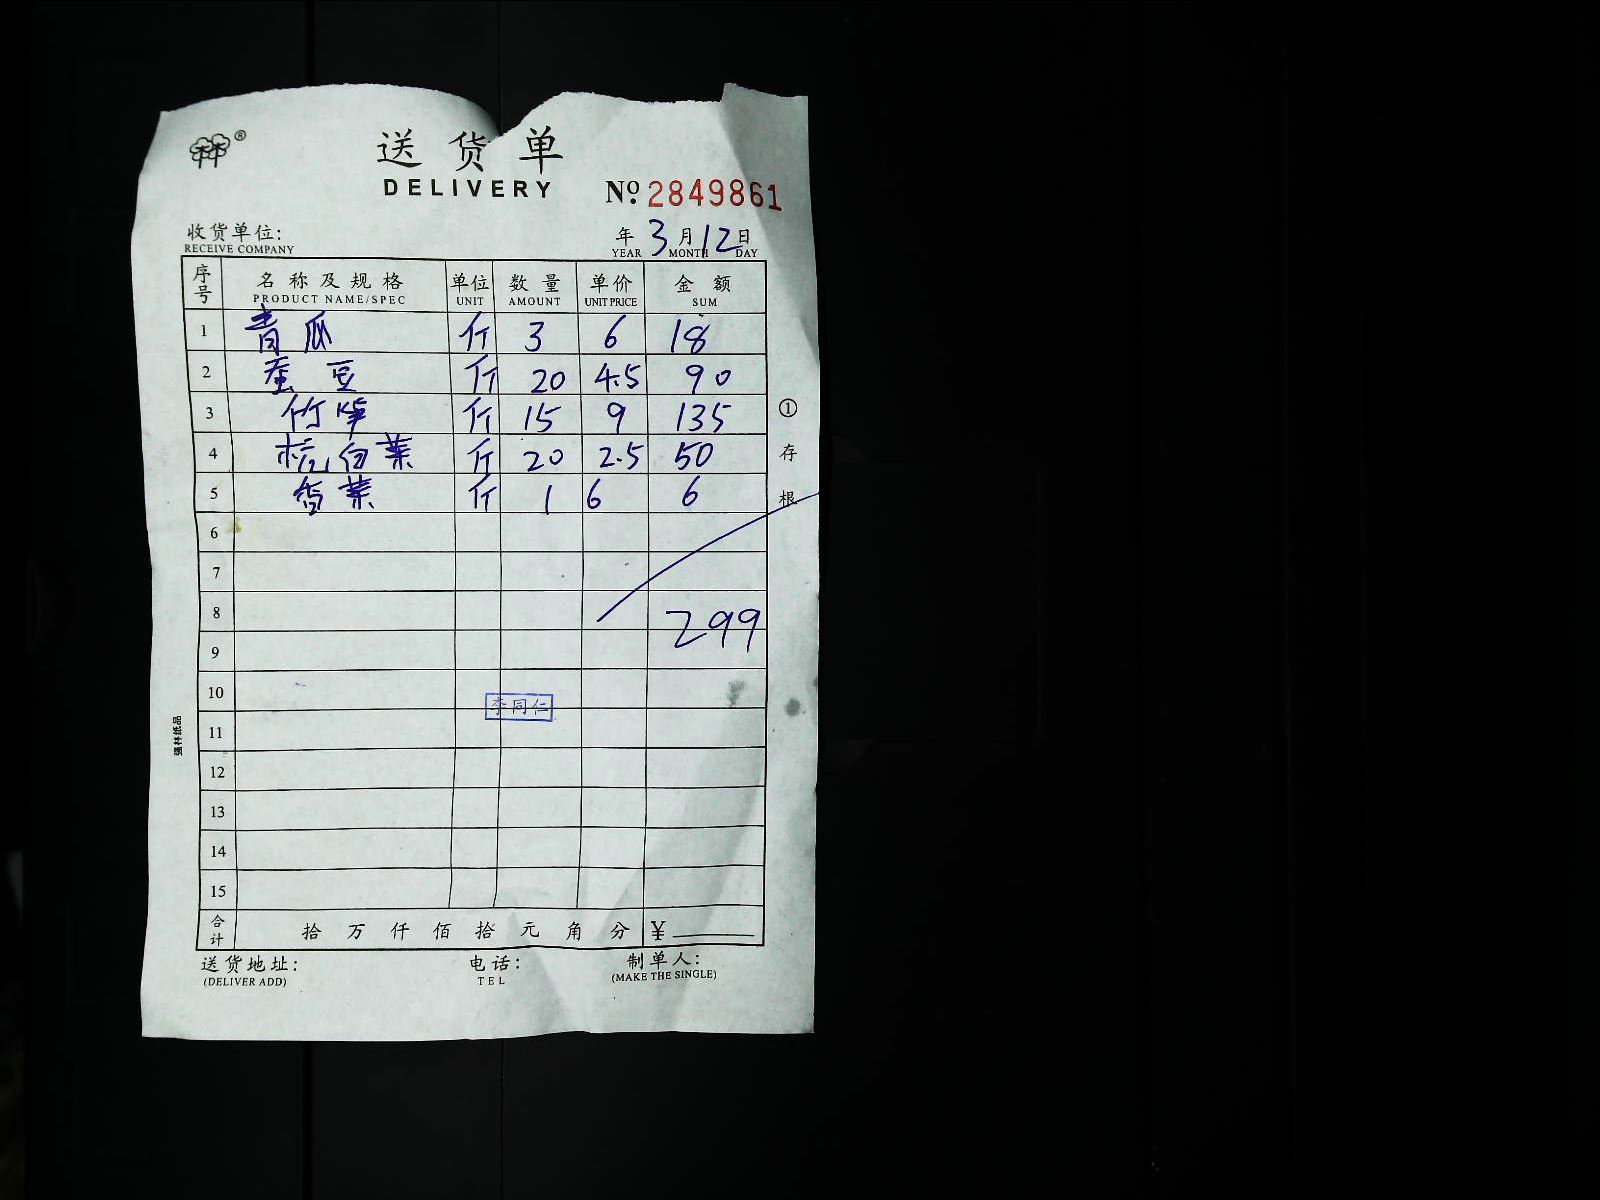 ®
送货单
DELIVERY
Nº. 2849861
收货单位:
RECEIVE COMPANY
年 3 月 12 日
YEAR MONTH DAY
序号 名称及规格 单位 数量 单价 金额
PRODUCT NAME/SPEC UNIT AMOUNT UNIT PRICE SUM
1 青瓜 斤 3 6 18
2 蚕豆 斤 20 4.5 90
3 竹 斤 15 9 135
4 杭白菜 斤 20 2.5 50
5 香菜 斤 1 6 6
6
7
8
299
9
10
李同仁
11
12
13
14
15
合计 拾 万 仟 佰 拾 元 角 分 ¥
送货地址: 电话: 制单人:
(DELIVER ADD) TEL (MAKE THE SINGLE)
①存根
强林纸品